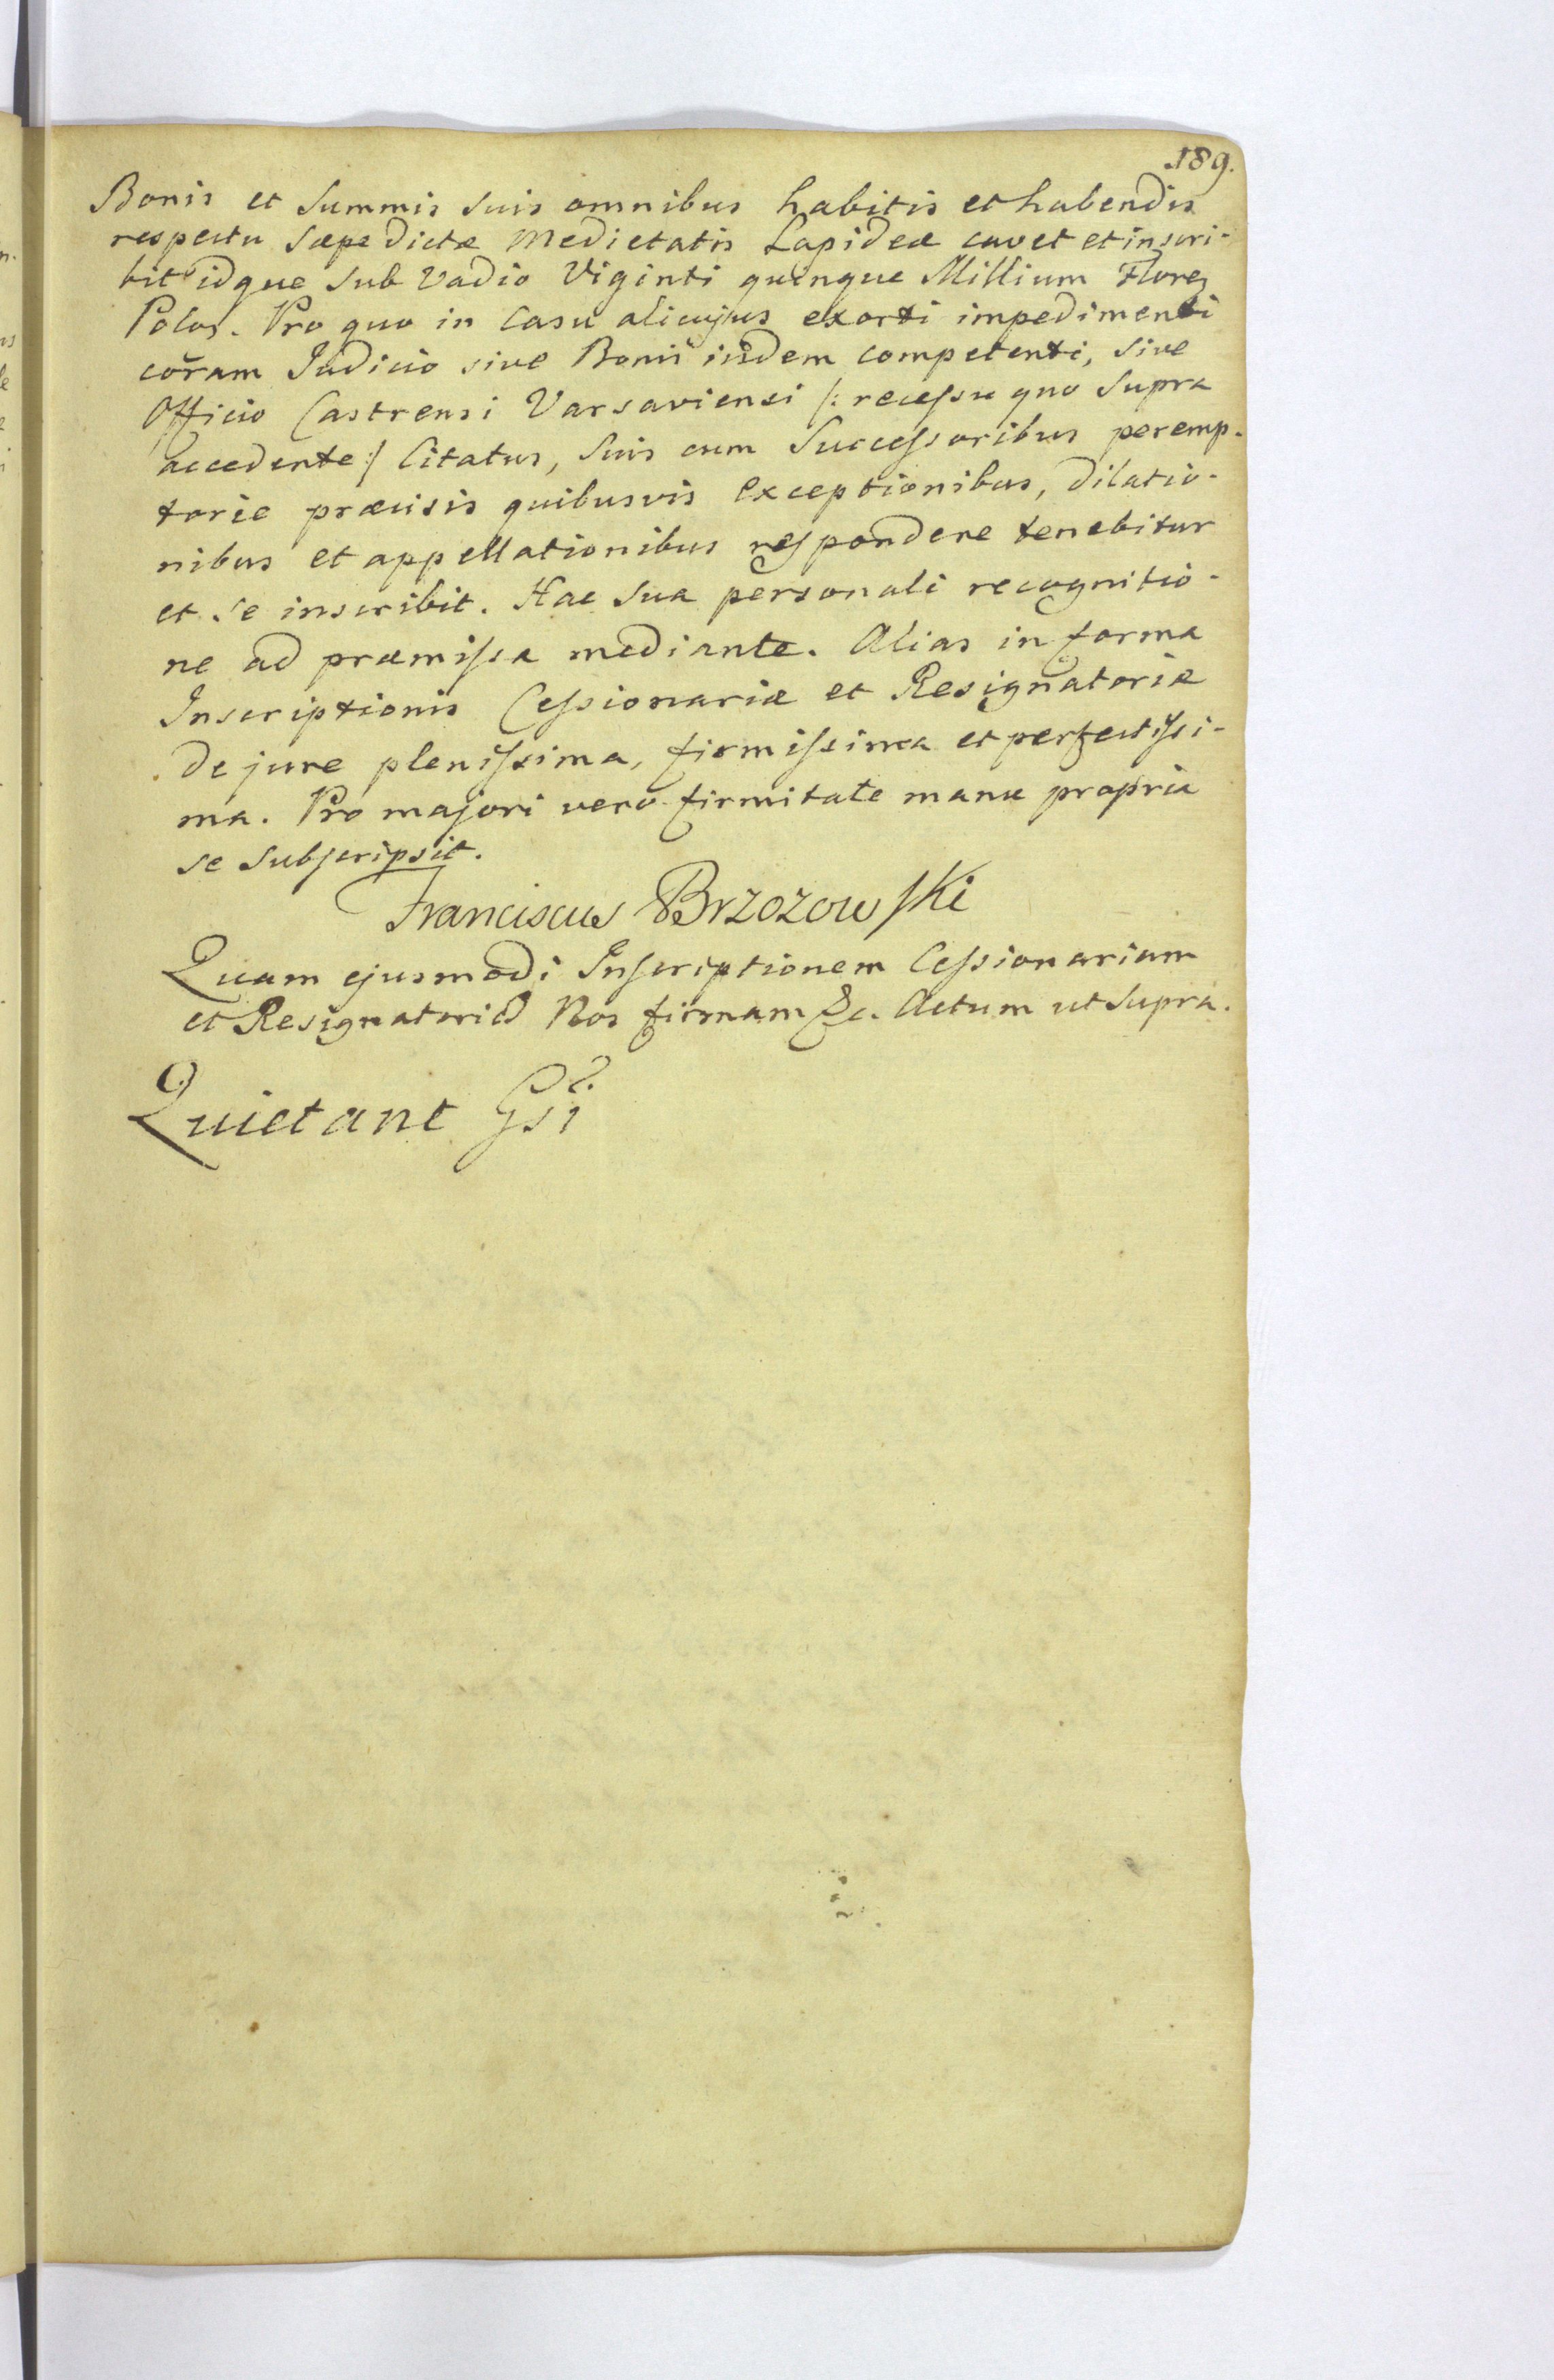 189.
Bonis et Summis suis omnibus habitis et habendis
respectu Sæpe dictæ Medietatis Lapideæ cavet et inscri-
bit idque sub Vadio Viginti quinque Millium Floren
Polos. Pro quo in Casu alicujus exorti impedimenti
coram Judicio sive Bonis iisdem competenti, sive
Officio Castrensi Varsaviensi /: recessu quo supra
accedente :/ Citatus, Suis cum Successoribus peremp-
torie præcisis quibusvis Exceptionibus, dilatio-
nibus et appellationibus respondere tenebitur
et se inscribit. Hac sua personali recognitio-
ne ad præmissa mediante. Alias in forma
Inscriptionis Cessionariæ et Resignatoriæ
de jure plenissima, firmissima et perfectissi-
ma. Pro majori vero firmitate manu propria
se subscripsit.
Franciscus Brzozowski
Quam ejusmodi Inscriptionem Cessionariam
et Resignatoriã Nos firmam &c. Actum ut supra.
Quietant